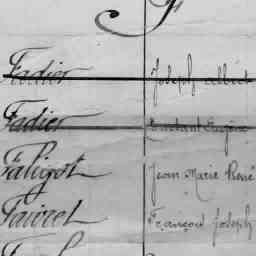 F
Fadier Joseph Albert
Fadier Constant Eugène
Faligot Jean Marie René
Fauvel François Joseph